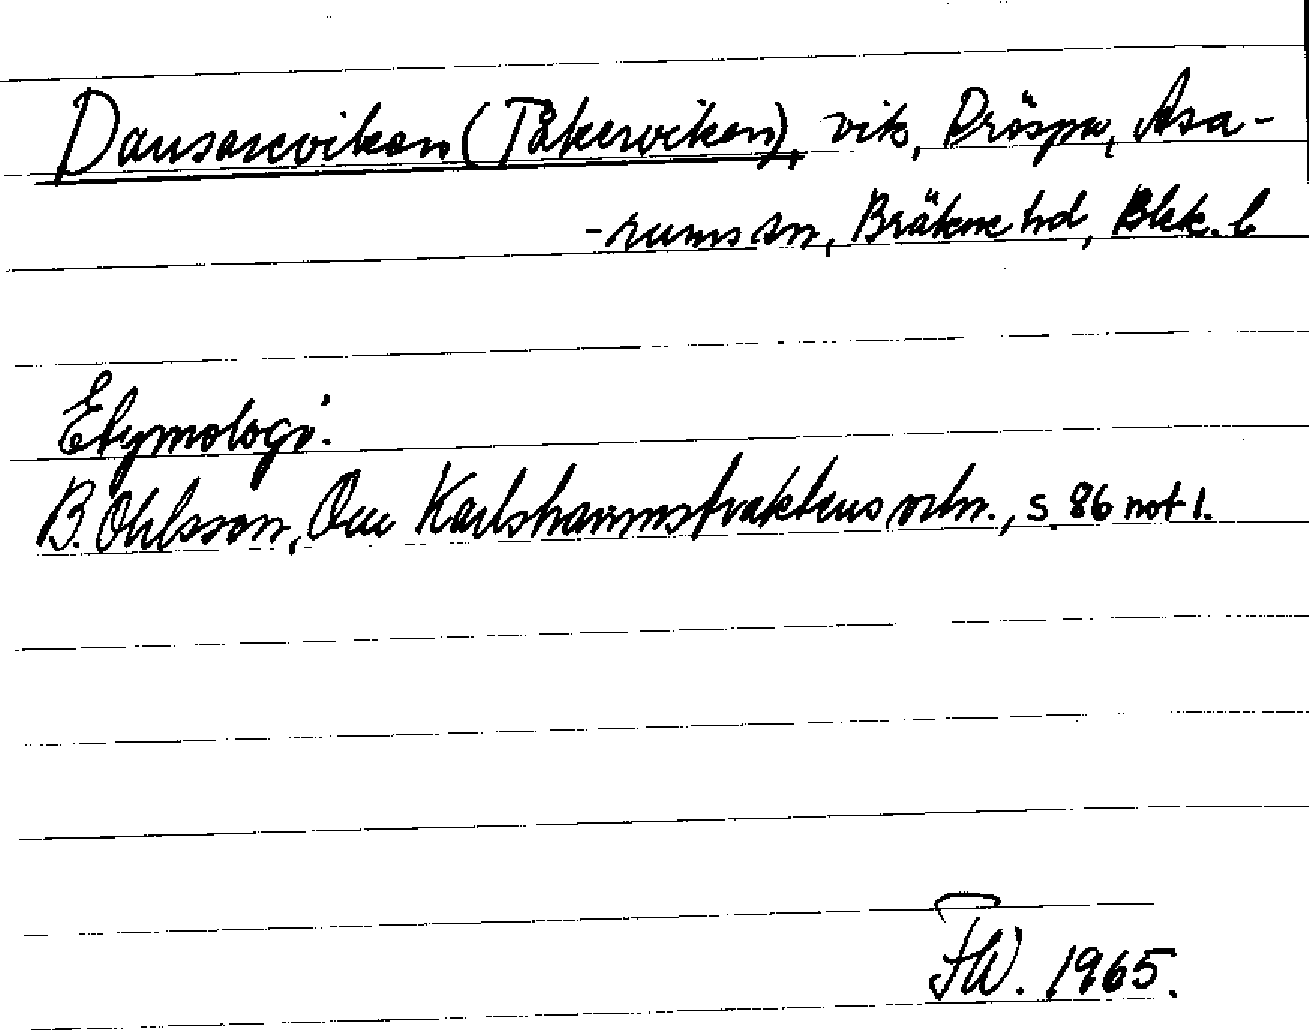 Dansarevikan (Tåkerviken), vik, Dröspa, Asa-
-rums sn, Bräkne hd, Blek. l
Etymologi.
B. Ohlsson, Om Karlshamnstraktens ortn., s. 86 not 1.
FW. 1965.